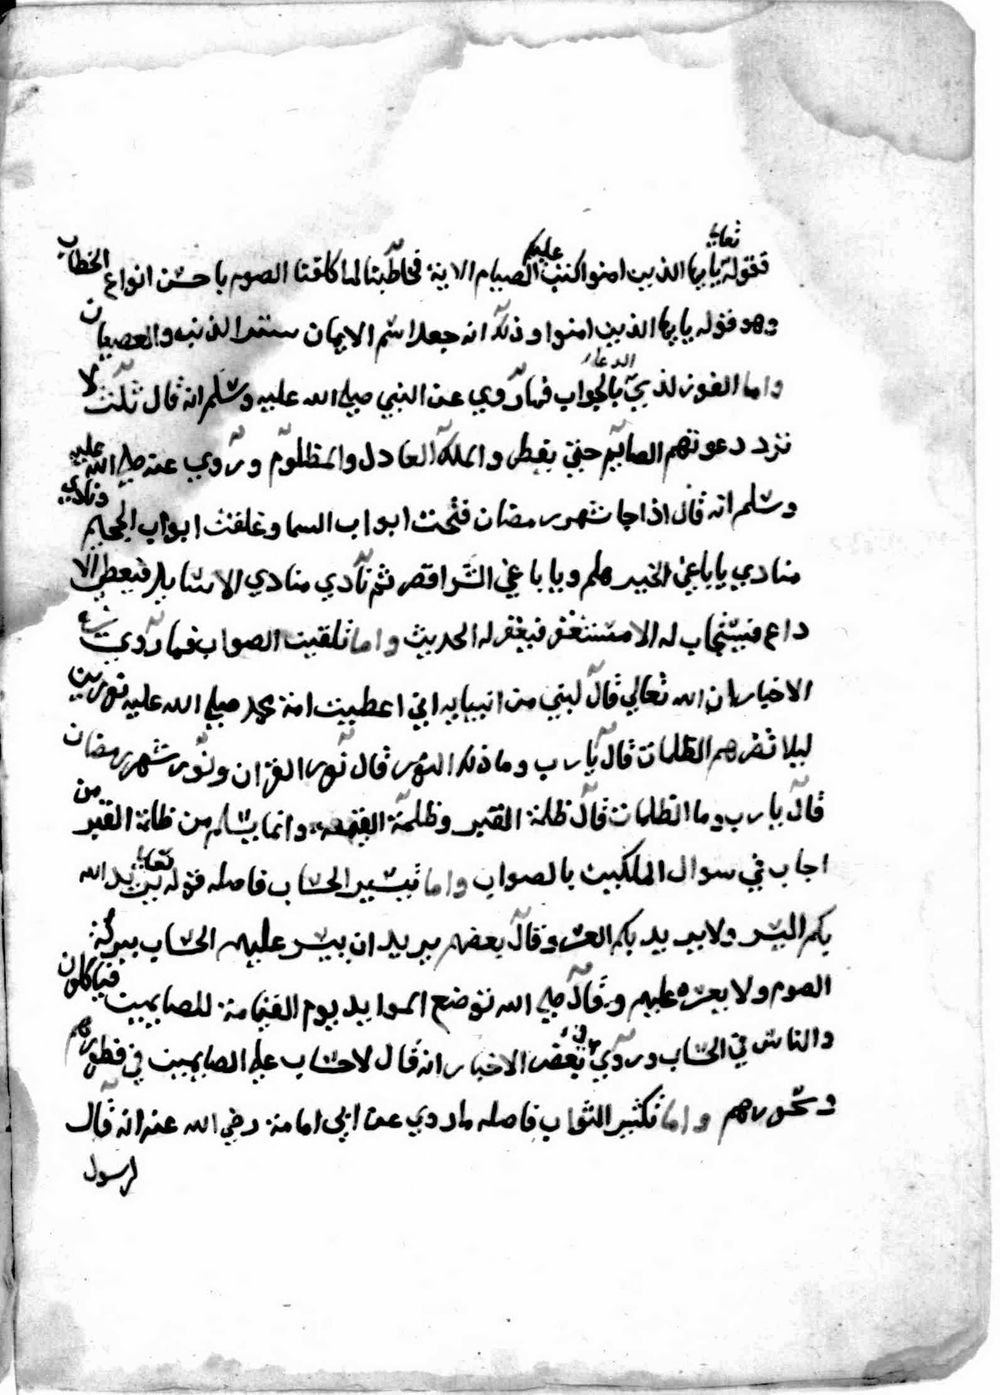 فقوله تعالى يا يها الذين امنوا كتب عليكم الصيام الاية فخاطبنا لما كلفنا الصوم باحسن انواع الخطاب
وهو قوله يا يها الذين امنوا وذلك انه جعل اسم الايمان ستر الذنب والعصيان
واما الفوز لذي بالجواب الدعاء فما روي عن النبي صلى الله عليه وسلم انه قال ثلث لا
ترد دعوتهم الصايم حتى يفطر والملك العادل والمظلوم وروي عنه صلى الله عليه
وسلم انه قال اذا جا شهر رمضان فتحت ابواب السما وغلقت ابواب الجحيم ونادي
منادي يا باغي الخير هلم ويا باغي الشر اقصر ثم نادي منادي الا سايل فيعطى الا
داع فيستجاب له الا مستغفر فيغفر له الحديث واما تلقين الصواب فما روي في
الاخبار ان الله تعالي قال لنبي من انبيايه اني اعطيت امة محمد صلى الله عليه نورين
ليلا تضرهم الظلمات قال يا رب وما ذلك النور قال نور القران ونور شهر رمضان
قال يا رب وما الظلمات قال ظلمة القبر وظلمة القيمة وانما يسلم من ظلمة القبر من
اجاب في سوال الملكين بالصواب واما تيسير الحساب فاصله قوله تعالى يريد الله
بكم اليسر ولا يريد بكم العسر وقال بعضهم يريد ان ييسر عليهم الحساب ببركة
الصوم ولا يعسره عليهم وقال صلى الله توضع الموايد يوم القيامة للصايمين فياكلون
والناس في الحساب وروي في بعض الاخبار انه قال لا حساب على الصايمين في فطورهم
وسحورهم واما تكثير الثواب فاصله ما روي عن ابي امامة رضي الله عنه انه قال
لرسول